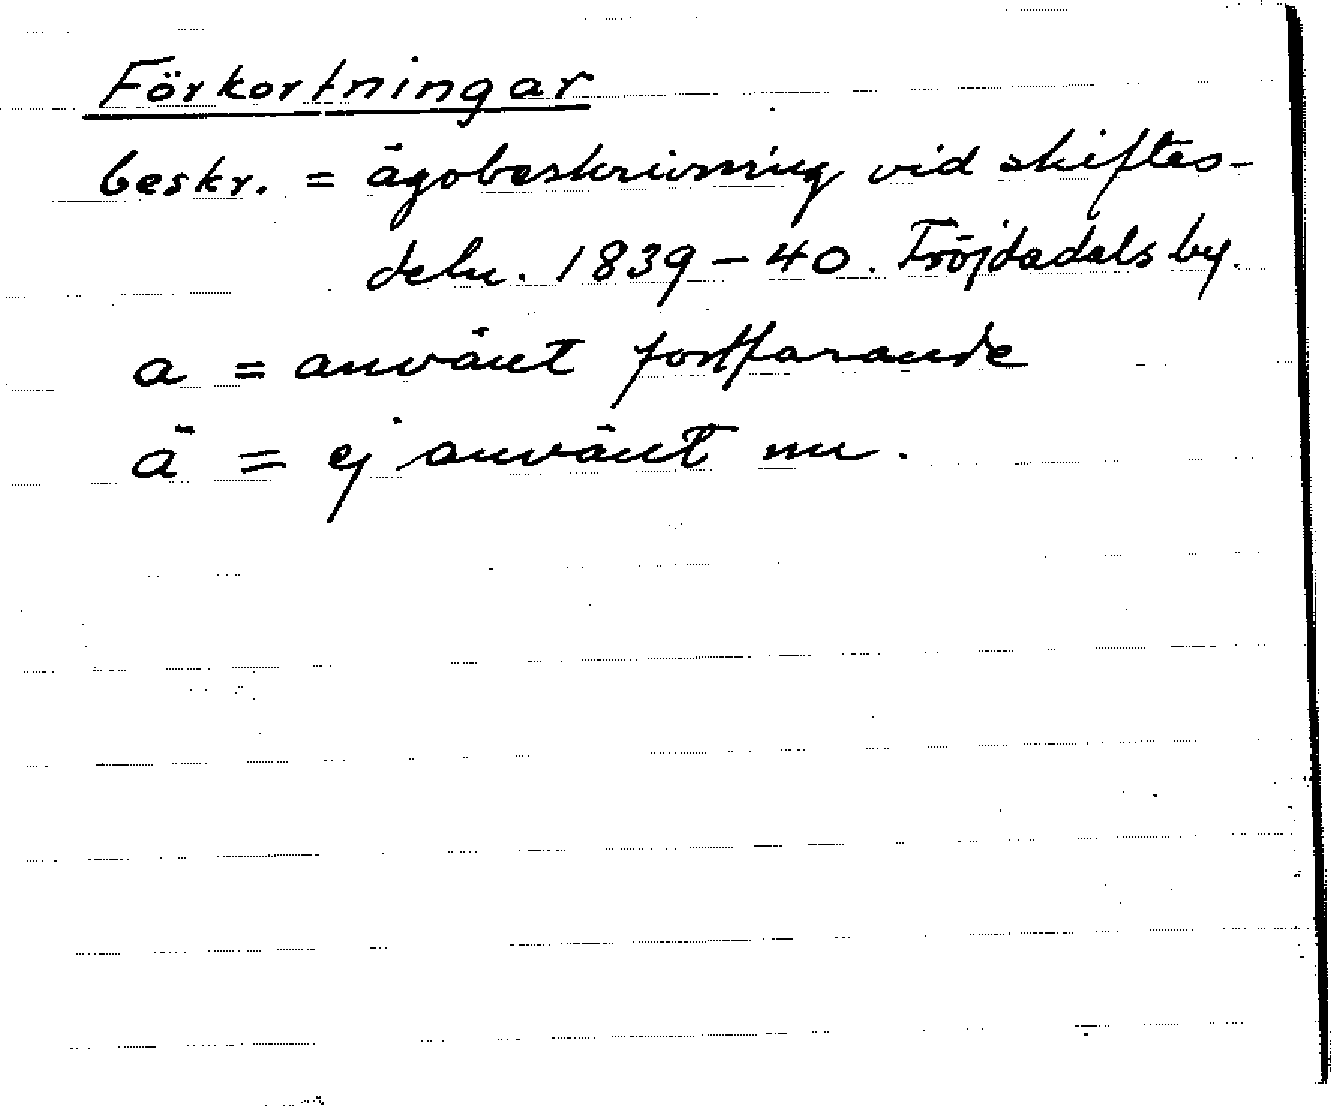 Förkortningar
beskr. = ägobeskrivning vid skiftes-
deln. 1839-40. Fröjdadals by.
a = använt fortfarande
ä = ej använt nu.